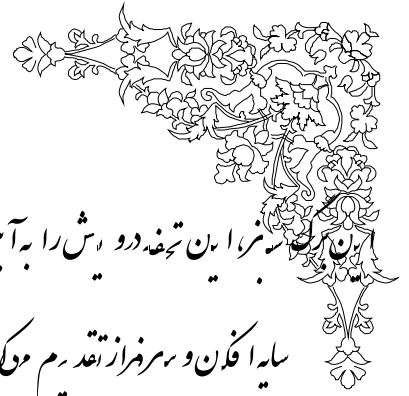 این برگ سبز، این تحفه درویش را به
سایه افکن و سرفراز تقدیم